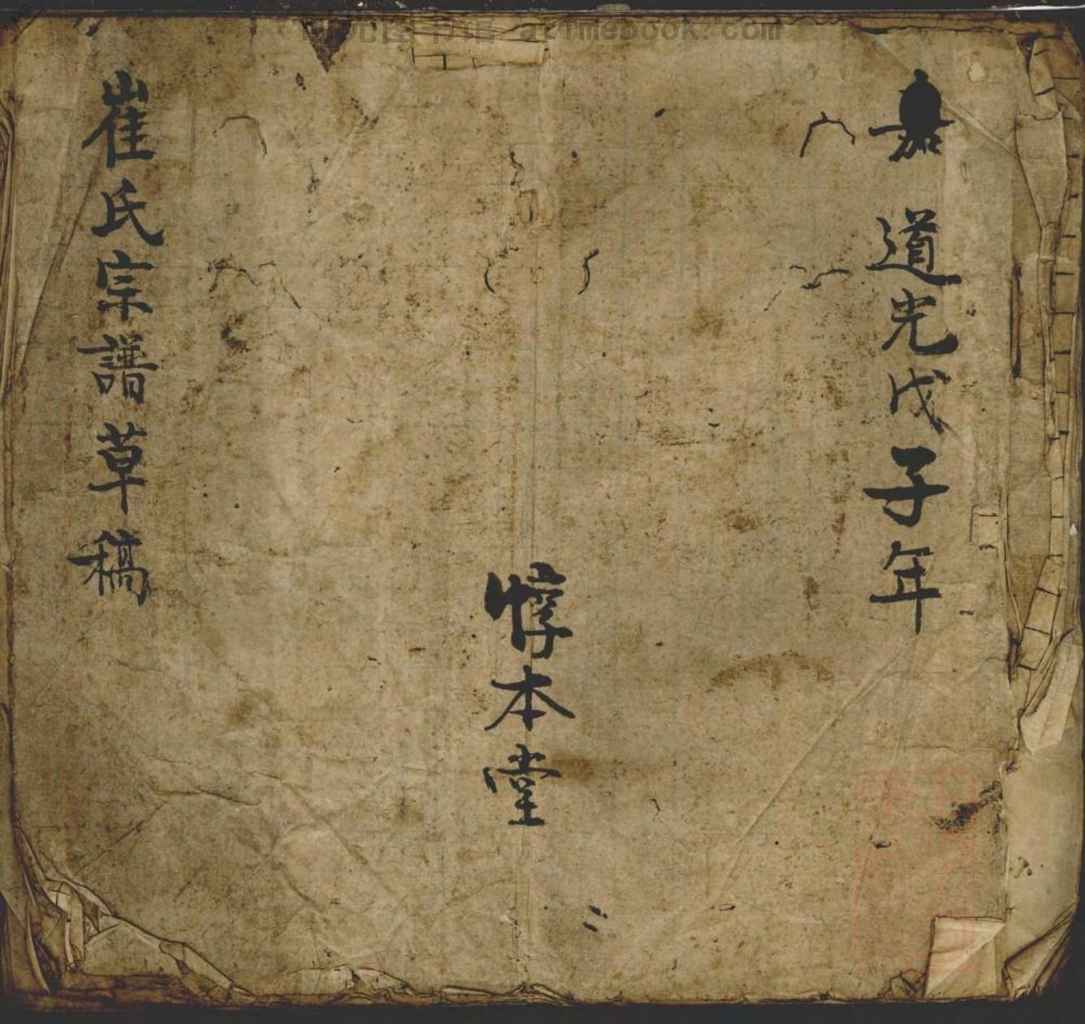 嘉
道光戊子年
惇本堂
崔氏宗譜草稿